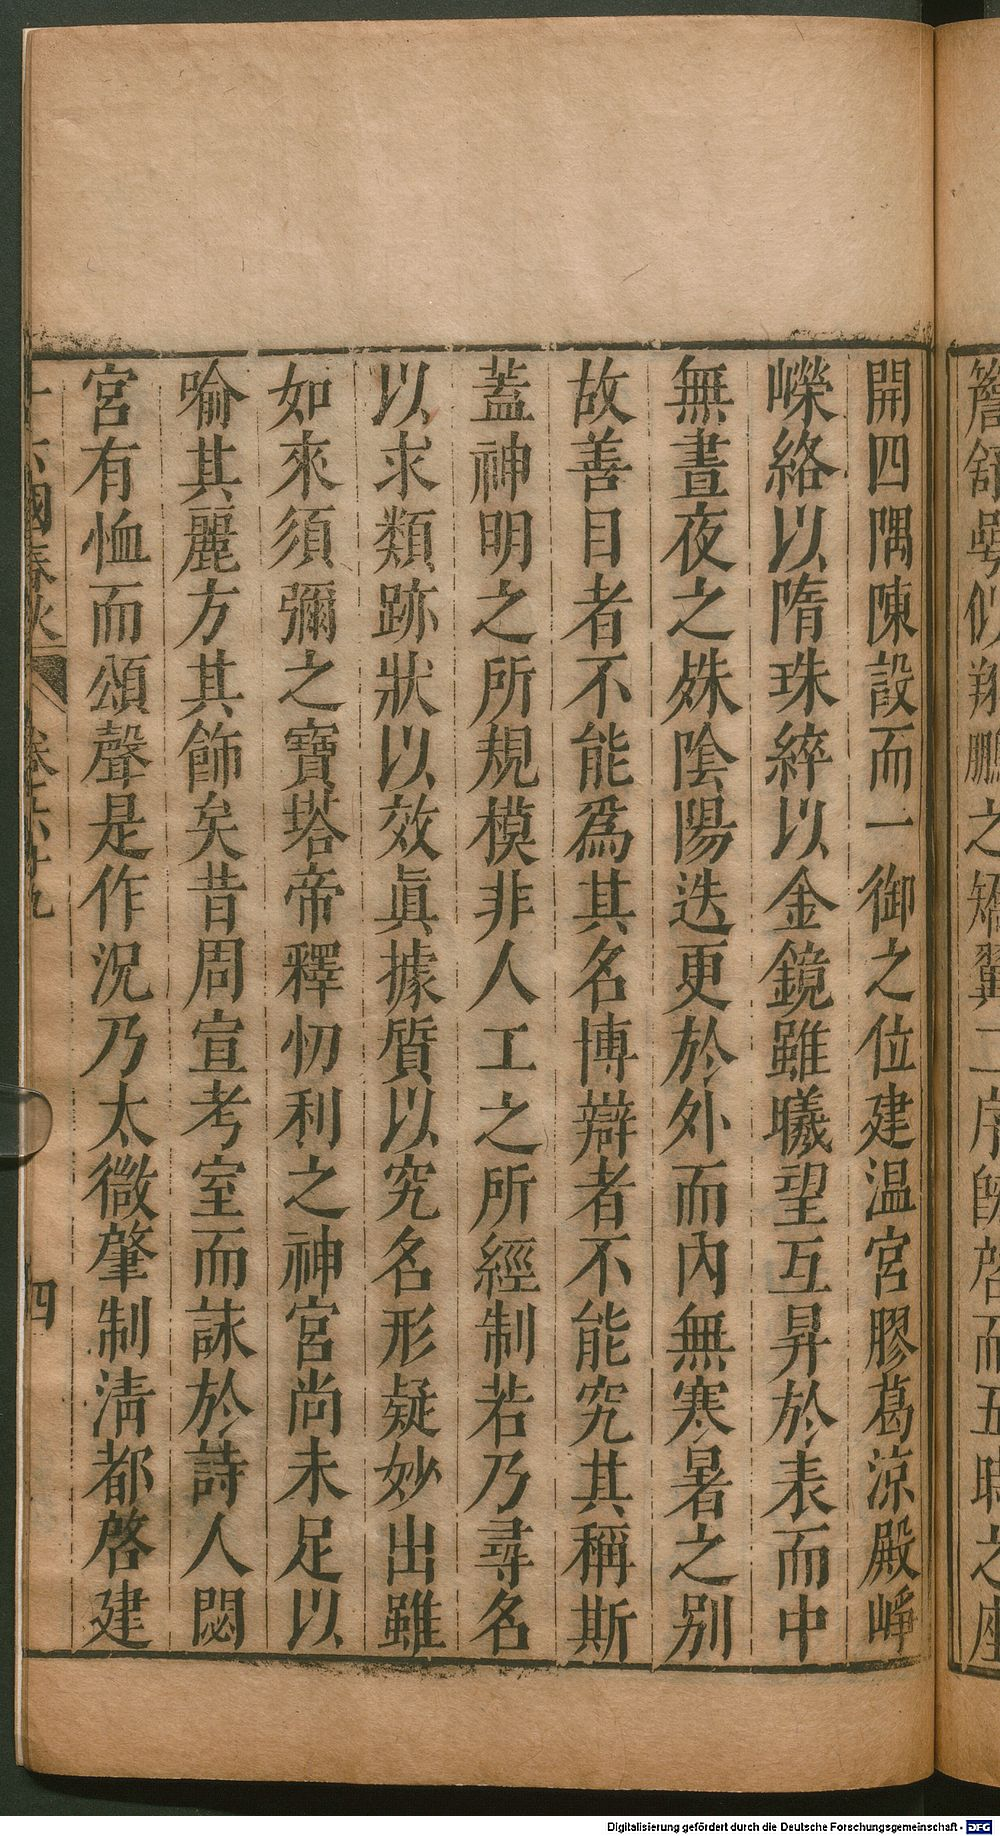 簷舒與似翔鵬之矯翼二序啟而五時之座
開四隅陳設而一御之位建温宮膠葛涼殿崢
嶸絡以隋珠綷以金鏡雖曦望互昇於表而中
無晝夜之殊陰陽迭更於外而內無寒暑之别
故善目者不能爲其名博辯者不能究其稱斯
蓋神明之所規模非人工之所經制若乃尋名
以求類跡狀以效眞據質以究名形疑妙出雖
如來須彌之寶塔帝釋忉利之神宮尚未足以
喻其麗方其飾矣昔周宣考室而詠於詩人閟
宮有恤而頌聲是作況乃太微肇制淸都啓建
十六國春秋 卷六十九 四
Digitalisierung gefördert durch die Deutsche Forschungsgemeinschaft - DFG